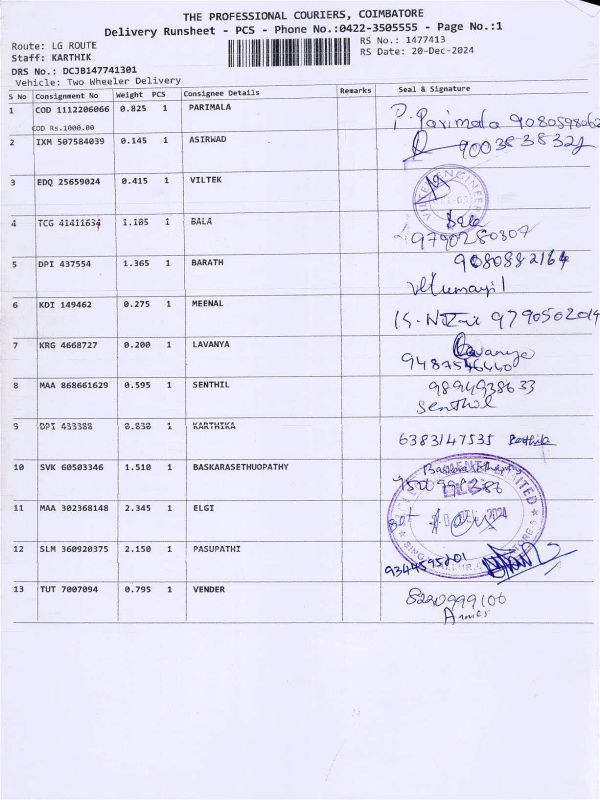 THE PROFESSIONAL COURIERS, COIMBATORE
Delivery Runsheet - PCS - Phone No.:0422-3505555 - Page No.:1
Route: LG ROUTE RS No.: 1477413
Staff: KARTHIK RS Date: 20-Dec-2024
DRS No.: DCJB147741301
Vehicle: Two Wheeler Delivery
S No Consignment No Weight PCS Consignee Details Remarks Seal & Signature
1 COD 1112206066 0.825 1 PARIMALA P. Parimala
COD Rs.1000.00
2 IXM 507584039 0.145 1 ASIRWAD
3 EDQ 25659024 0.415 1 VILTEK
4 TCG 41411634 1.105 1 BALA Bala
9790280307
5 DPI 437554 1.365 1 BARATH 9080882164
6 KDI 149462 0.275 1 MEENAL 9790502019
7 KRG 4668727 0.200 1 LAVANYA Lavanya
9487546440
8 MAA 868661629 0.595 1 SENTHIL 9894938633
Senthil
9 DPI 433388 0.830 1 KARTHIKA 6383147535 Karthika
10 SVK 60503346 1.510 1 BASKARASETHUOPATHY
11 MAA 302368148 2.345 1 ELGI
12 SLM 360920375 2.150 1 PASUPATHI 9344595201
13 TUT 7007094 0.795 1 VENDER 8220999106